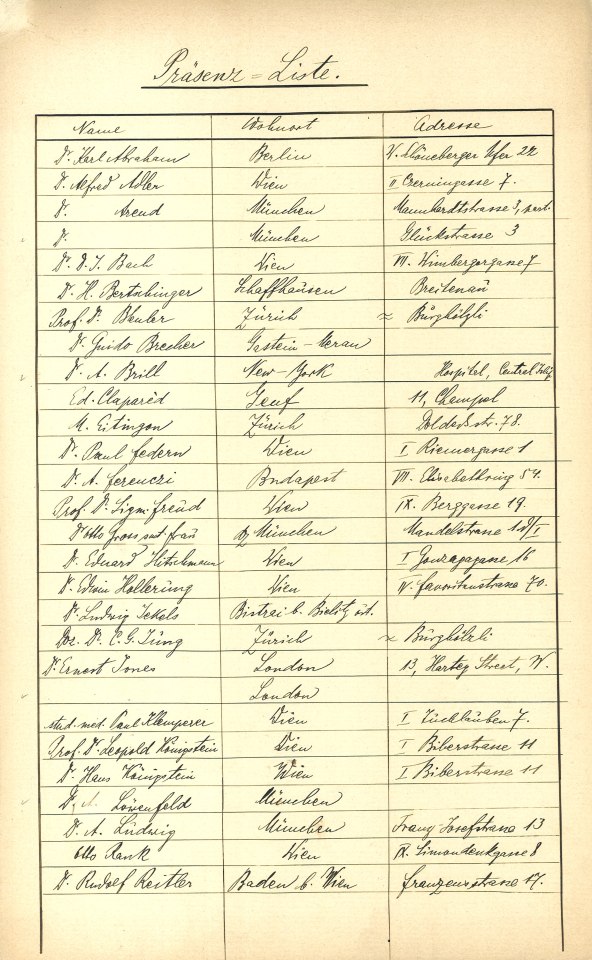 Präsenz = Liste.
Name Wohnort Adresse
Dr. Karl Abraham Berlin W. Schöneberger Ufer 22
Dr. Alfred Adler Wien II Czerningasse 7.
Dr. Arend München Mannhardtstrasse 3, part.
Dr. München Glückstrasse 3
Dr. D. J. Bach Wien VII. Wimbergergasse 7
Dr. H. Bertschinger Schaffhausen Breitenau
Prof. Dr. Bleuler Zürich Burghölzli
Dr. Guido Brecher Gastein - Meran
Dr. A. Brill New-York Hospital, Central Islip
Ed. Claparèd Genf 11, Champel
M. Eitingon Zürich Dolderstr. 78.
Dr. Paul Federn Wien I Riemergasse 1
Dr. A. Ferenczi Budapest VII. Elisabethring 54.
Prof. Dr. Sigm. Freud Wien IX. Berggasse 19.
Dr. Otto Gross mit Frau München Mandelstrasse
Dr. Eduard Hitschmann Wien I Gonzagagasse 16
Dr. Edwin Hollerung Wien IV. Favoritenstrasse 70.
Dr. Ludwig Jekels Bistrai b. Bielitz öst.
Doz. Dr. C. G. Jung Zürich Burghölzli
Dr. Ernest Jones London 13, Harley Street, W.
London
stud. med. Paul Klemperer Wien I Tuchlauben 7.
Prof. Dr. Leopold Königstein Wien I Biberstrasse 11
Dr. Hans Königstein Wien I Biberstrasse 11
Dr. A. Löwenfeld München
Dr. A. Ludwig München Franz Josefstrasse 13
Otto Rank Wien IX. Simondenkgasse 8
Dr. Rudolf Reitler Baden b. Wien Franzensstrasse 17.